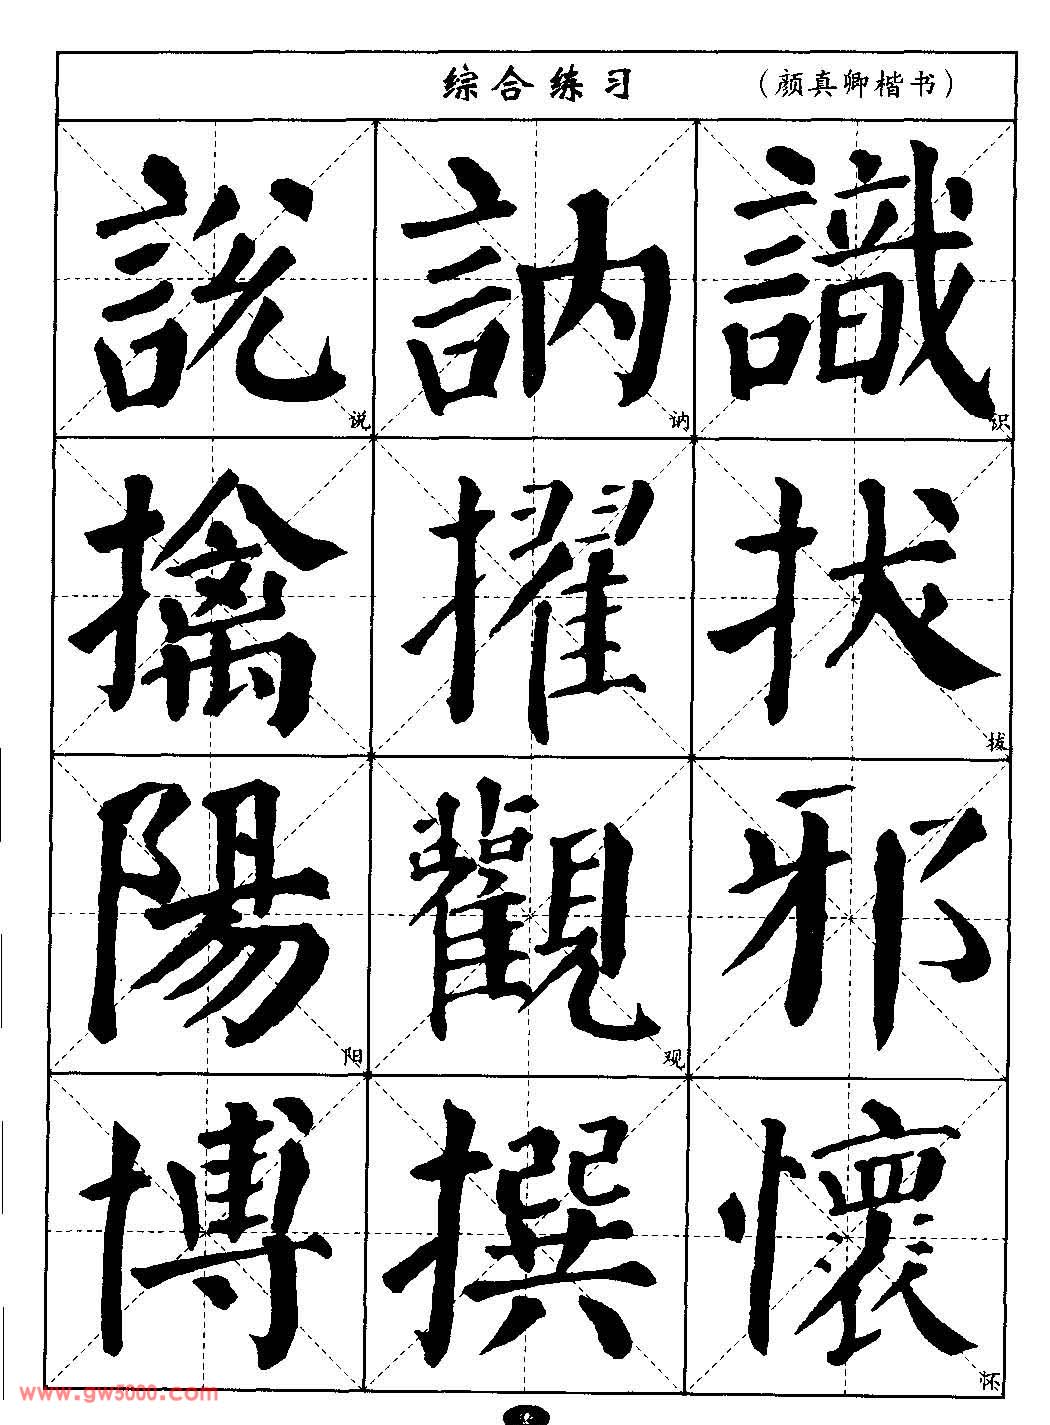 综合练习 （颜真卿楷书）
說 訥 識
说 讷 识
擒 擢 拔
拔
陽 觀 邪
阳 观
博 撰 懷
怀
www.gw5000.com